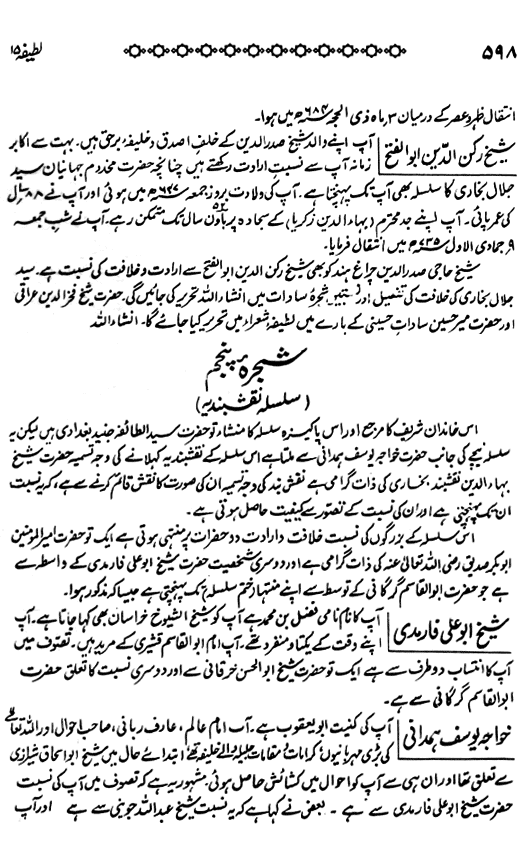 ۵۹۸
لطیفہ ۱۵
انتقال ظہر و عصر کے درمیان ۳ ماہ ذی الحجہ ۶۸۴ھ میں ہوا۔
شیخ رکن الدین ابوالفتح
آپ اپنے والد شیخ صدرالدین کے خلفِ اصدق و خلیفہ برحق ہیں۔ بہت سے اکابر
زمانہ آپ سے نسبتِ ارادت رکھتے ہیں چنانچہ حضرت مخدوم جہانیاں سید
جلال بخاری کا سلسلہ بھی آپ تک پہنچتا ہے۔ آپ کی ولادت بروز جمعہ ۶۴۷ھ میں ہوئی اور آپ نے ۸۸ سال
کی عمر پائی۔ آپ اپنے جد محترم (بہاء الدین زکریا) کے سجادہ پر باون ۵۲ سال تک متمکن رہے۔ آپ نے شبِ جمعہ
۹ جمادی الاول ۷۳۵ھ میں انتقال فرمایا۔
شیخ حاجی صدرالدین چراغ ہند کو بھی شیخ رکن الدین ابوالفتح سے ارادت و خلافت کی نسبت ہے۔ سید
جلال بخاری کی خلافت کی تفصیل اور شجرۂ سادات میں انشاء اللہ تحریر کی جائیں گی۔ حضرت شیخ فخرالدین عراقی
اور حضرت میر حسین ساداتِ حسینی کے بارے میں لطیفہ شعراء میں تحریر کیا جائے گا۔ انشاء اللہ
شجرۂ پنجم
(سلسلہ نقشبندیہ)
اس خاندان شریف کا مرجع اور اس پاکیزہ سلسلہ کا منشاء تو حضرت سیدالطائفہ جنید بغدادی ہیں لیکن یہ
سلسلہ نیچے کی جانب حضرت خواجہ یوسف ہمدانی سے ملتا ہے اس سلسلہ کے نقشبندیہ کہلانے کی وجہ تسمیہ حضرت شیخ
بہاء الدین نقشبند بخاری کی ذات گرامی ہے نقش بند کی وجہ تسمیہ ان کی صورت کا نقش قائم کرنے سے ہے، کہ یہ نسبت
ان تک پہنچتی ہے اور ان کی نسبت کے تصور سے کیفیت حاصل ہوتی ہے۔
اس سلسلہ کے بزرگوں کی نسبت خلافت و ارادت دو حضرات پر منتہی ہوتی ہے ایک تو حضرت امیرالمومنین
ابوبکر صدیق رضی اللہ تعالیٰ عنہ کی ذات گرامی ہے اور دوسری شخصیت حضرت شیخ ابوعلی فارمدی کے واسطہ سے
ہے جو حضرت ابوالقاسم گرگانی کے توسط سے اپنے منتہا (ختم سلسلہ) تک پہنچتی ہے جیسا کہ مذکور ہوا۔
شیخ ابوعلی فارمدی
آپ کا نام نامی فضل بن محمد ہے آپ کو شیخ الشیوخ خراسان بھی کہا جاتا ہے۔ آپ
اپنے وقت کے یکتا و منفرد تھے۔ آپ امام ابوالقاسم قشیری کے مرید ہیں۔ تصوف میں
آپ کا انتساب دو طرف سے ہے ایک تو حضرت شیخ ابوالحسن خرقانی سے اور دوسری نسبت کا تعلق حضرت
ابوالقاسم گرگانی سے ہے۔
خواجہ یوسف ہمدانی
آپ کی کنیت ابویعقوب ہے۔ آپ امام عالم، عارف ربانی، صاحب احوال اور اللہ تعالیٰ
کی بڑی مہربانیوں، کرامات و مقامات جلیلہ والے خلیفہ تھے، ابتدائے حال میں شیخ ابواسحاق شیرازی
سے تعلق تھا اور ان ہی سے آپ کو احوال میں کشائش حاصل ہوئی۔ مشہور یہ ہے کہ تصوف میں آپ کی نسبت
حضرت شیخ ابوعلی فارمدی سے ہے۔ بعض نے کہا ہے کہ یہ نسبت شیخ عبداللہ جوینی سے ہے اور آپ